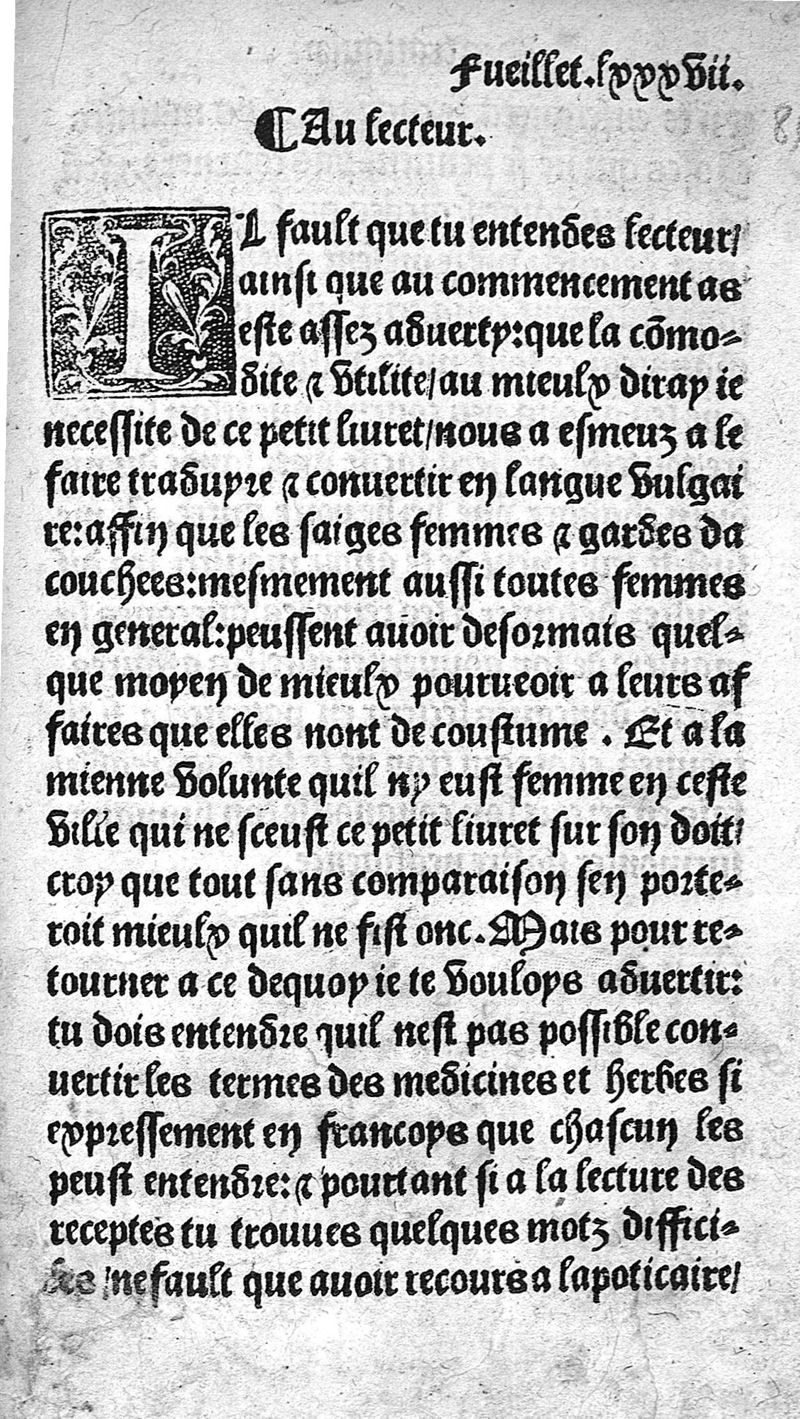 Fueillet.lxxxvii.
⁋Au lecteur.
IL fault que tu entendes lecteur/
ainsi que au commencement as
este assez aduerty:que la cōmo-
dite ⁊ vtilite/au mieulx diray ie
necessite de ce petit liuret/nous a esmeuz a le
faire traduyre ⁊ conuertir en langue vulgai
re:affin que les saiges femmes ⁊ gardes da
couchees:mesmement aussi toutes femmes
en general:peussent auoir desormais quel-
que moyen de mieulx pourueoir a leurs af
faires que elles nont de coustume . Et a la
mienne volunte quil ny eust femme en ceste
ville qui ne sceust ce petit liuret sur son doit/
croy que tout sans comparaison sen porte-
roit mieulx quil ne fist onc.Mais pour re-
tourner a ce dequoy ie te voulops aduertir:
tu dois entendre quil nest pas possible con-
uertir les termes des medicines et herbes si
expressement en francoys que chascun les
peust entendre:⁊ pourtant si a la lecture des
receptes tu trouues quelques motz diffici-
les /ne fault que auoir recours a lapoticaire/